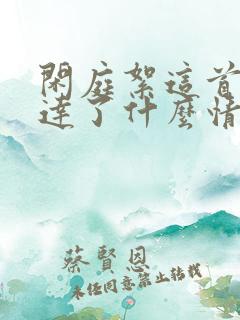 閑庭絮這首
達了什麼情
蔡賢恩
未经同意禁止转载